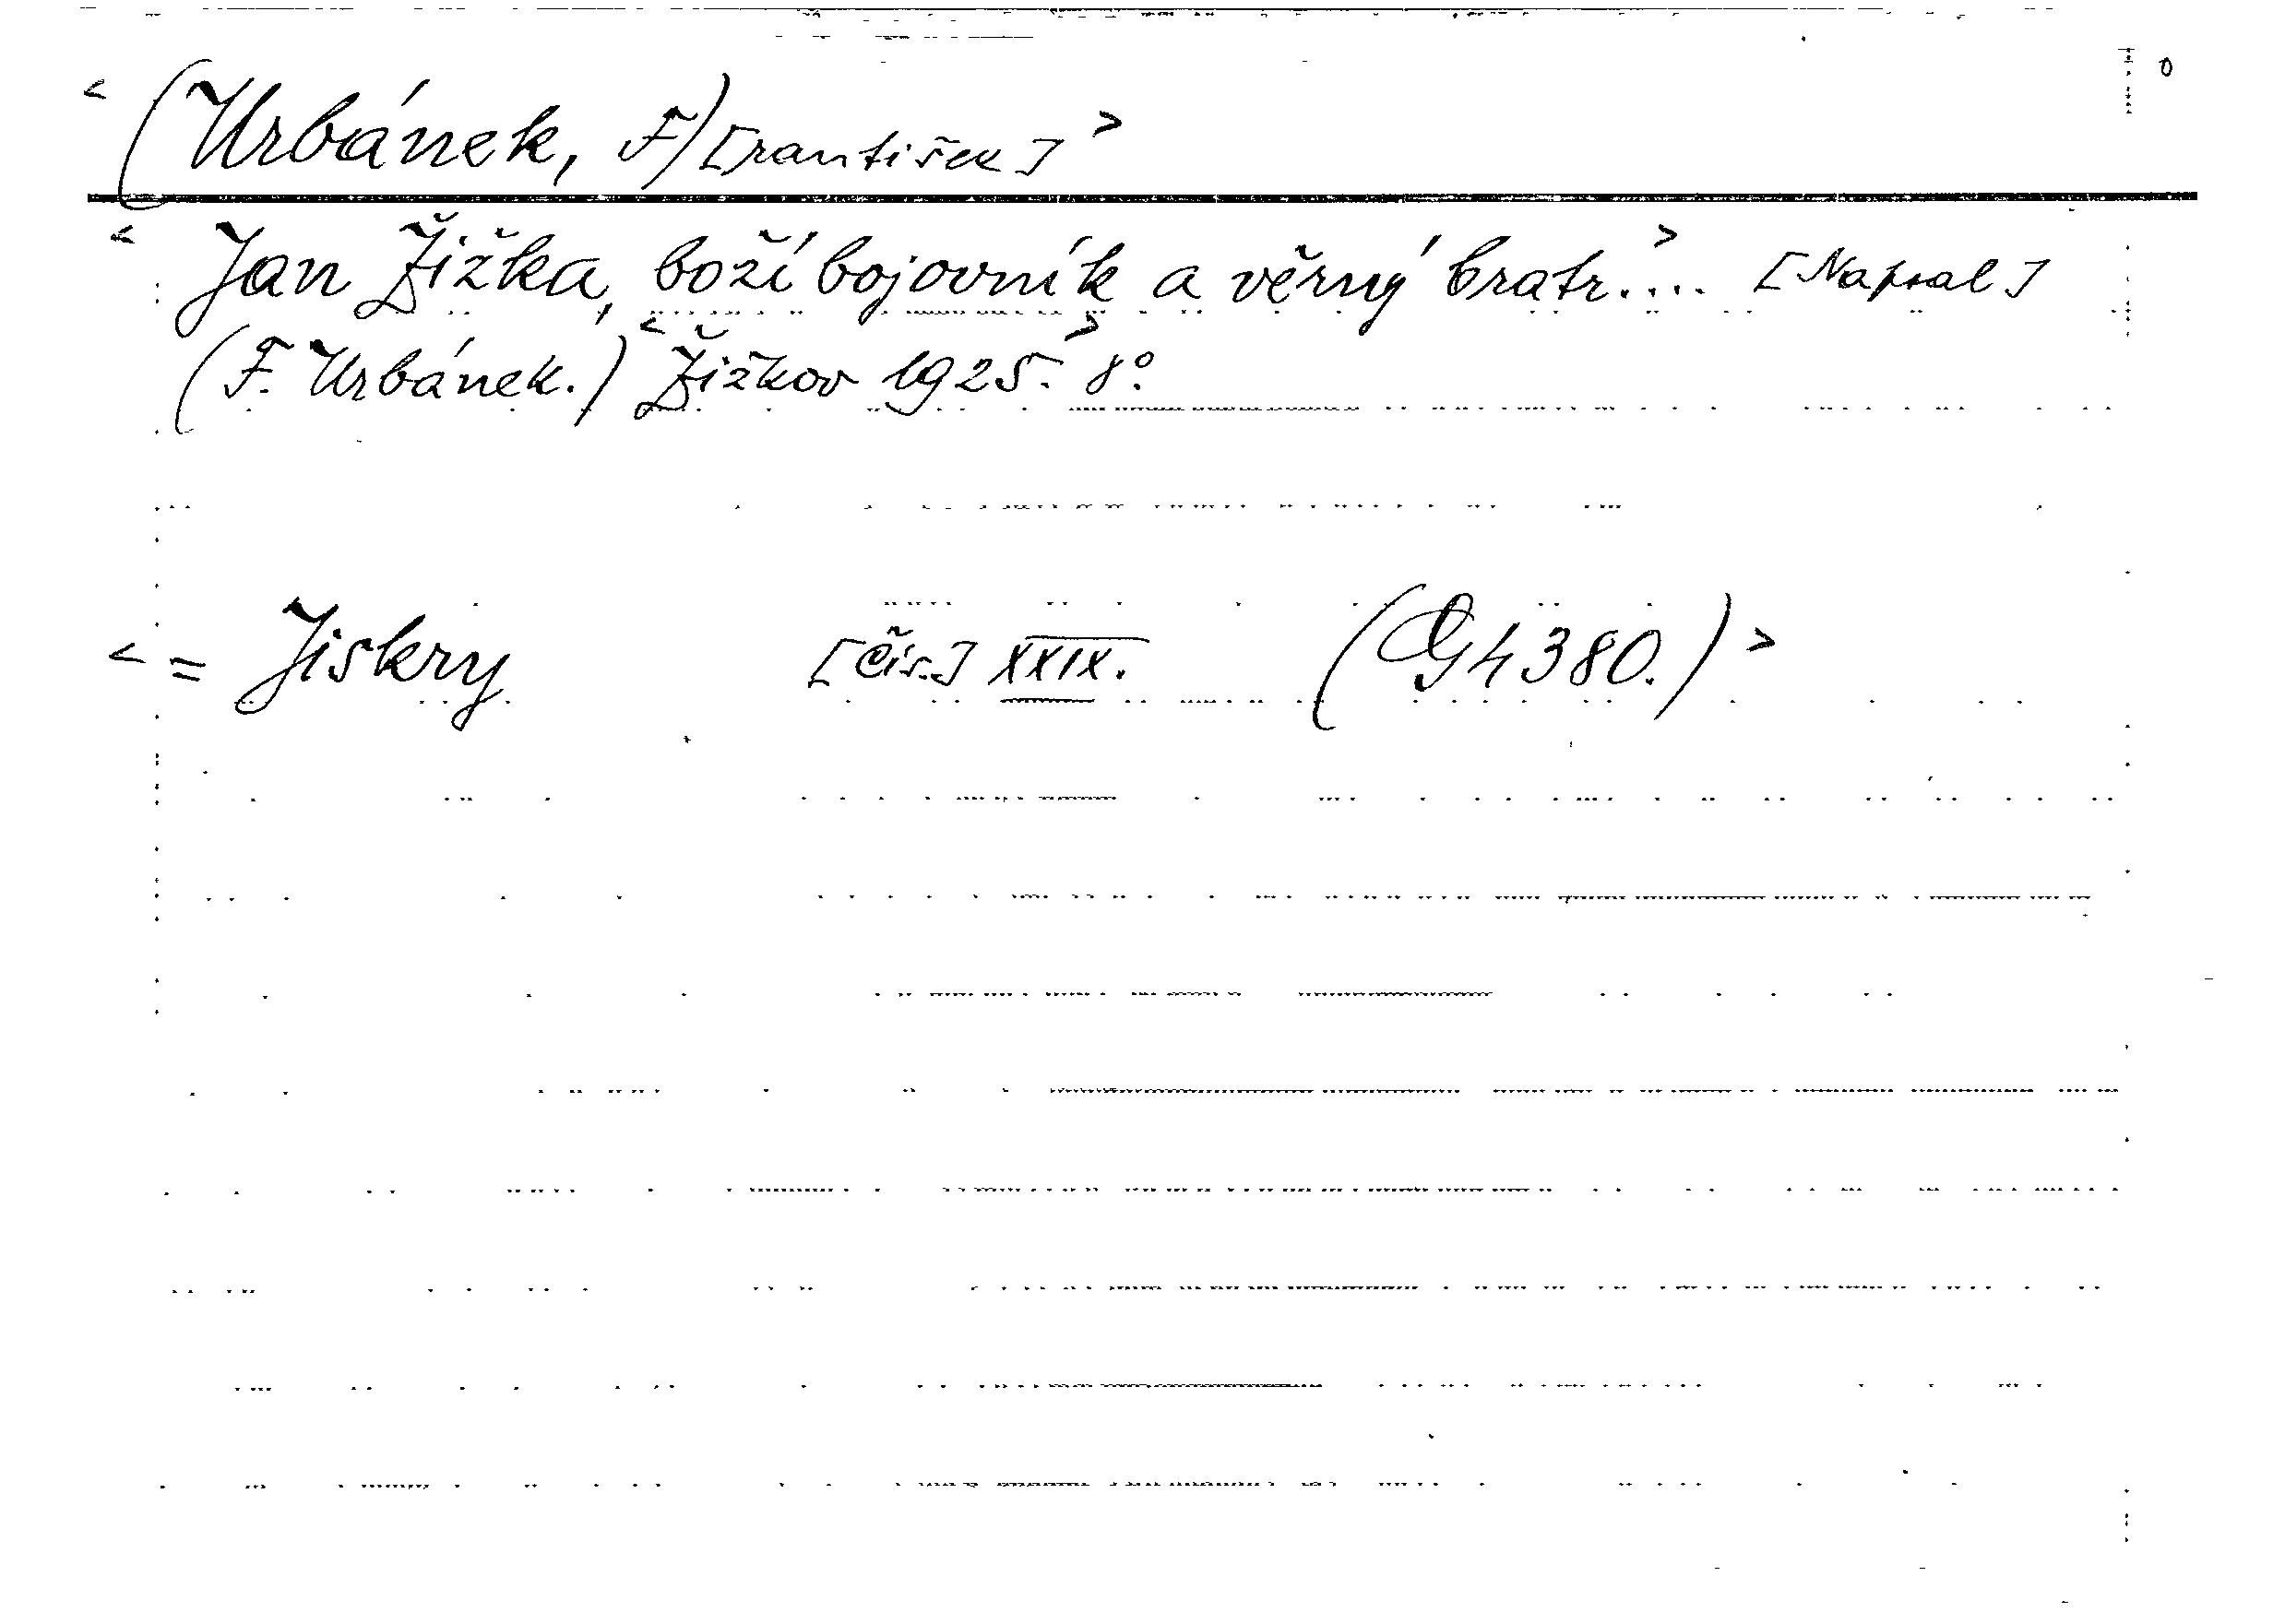 <(Urbánek, F)[rantišek]>
<Jan Žižka, boží bojovník a věrný bratr.>... [Napsal]
(F. Urbánek.) <Žižkov 1925.> 8°.
<= Jiskry [čís.] XXIX. (G 4380.)>